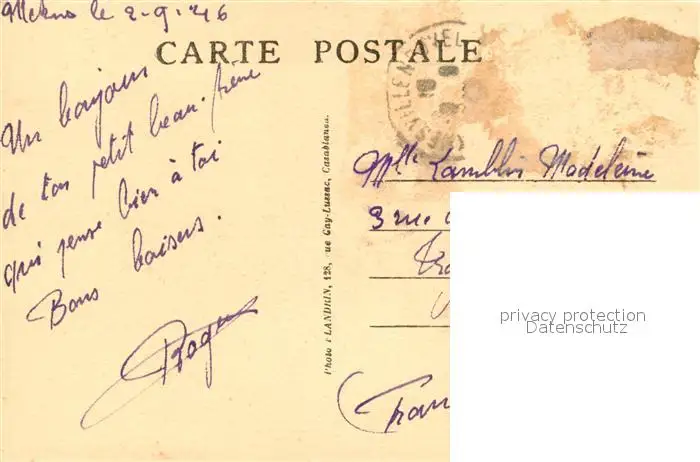 Meknes le 2-9-46
CARTE POSTALE
Un bonjour
de ton petit beau-frère
qui pense bien à toi
Bons baisers.
Roger
Photo FLANDRIN, 128, rue Gay-Lussac, Casablanca.
Mlle Lamblin Madeleine
3 rue
Fran
privacy protection
Datenschutz